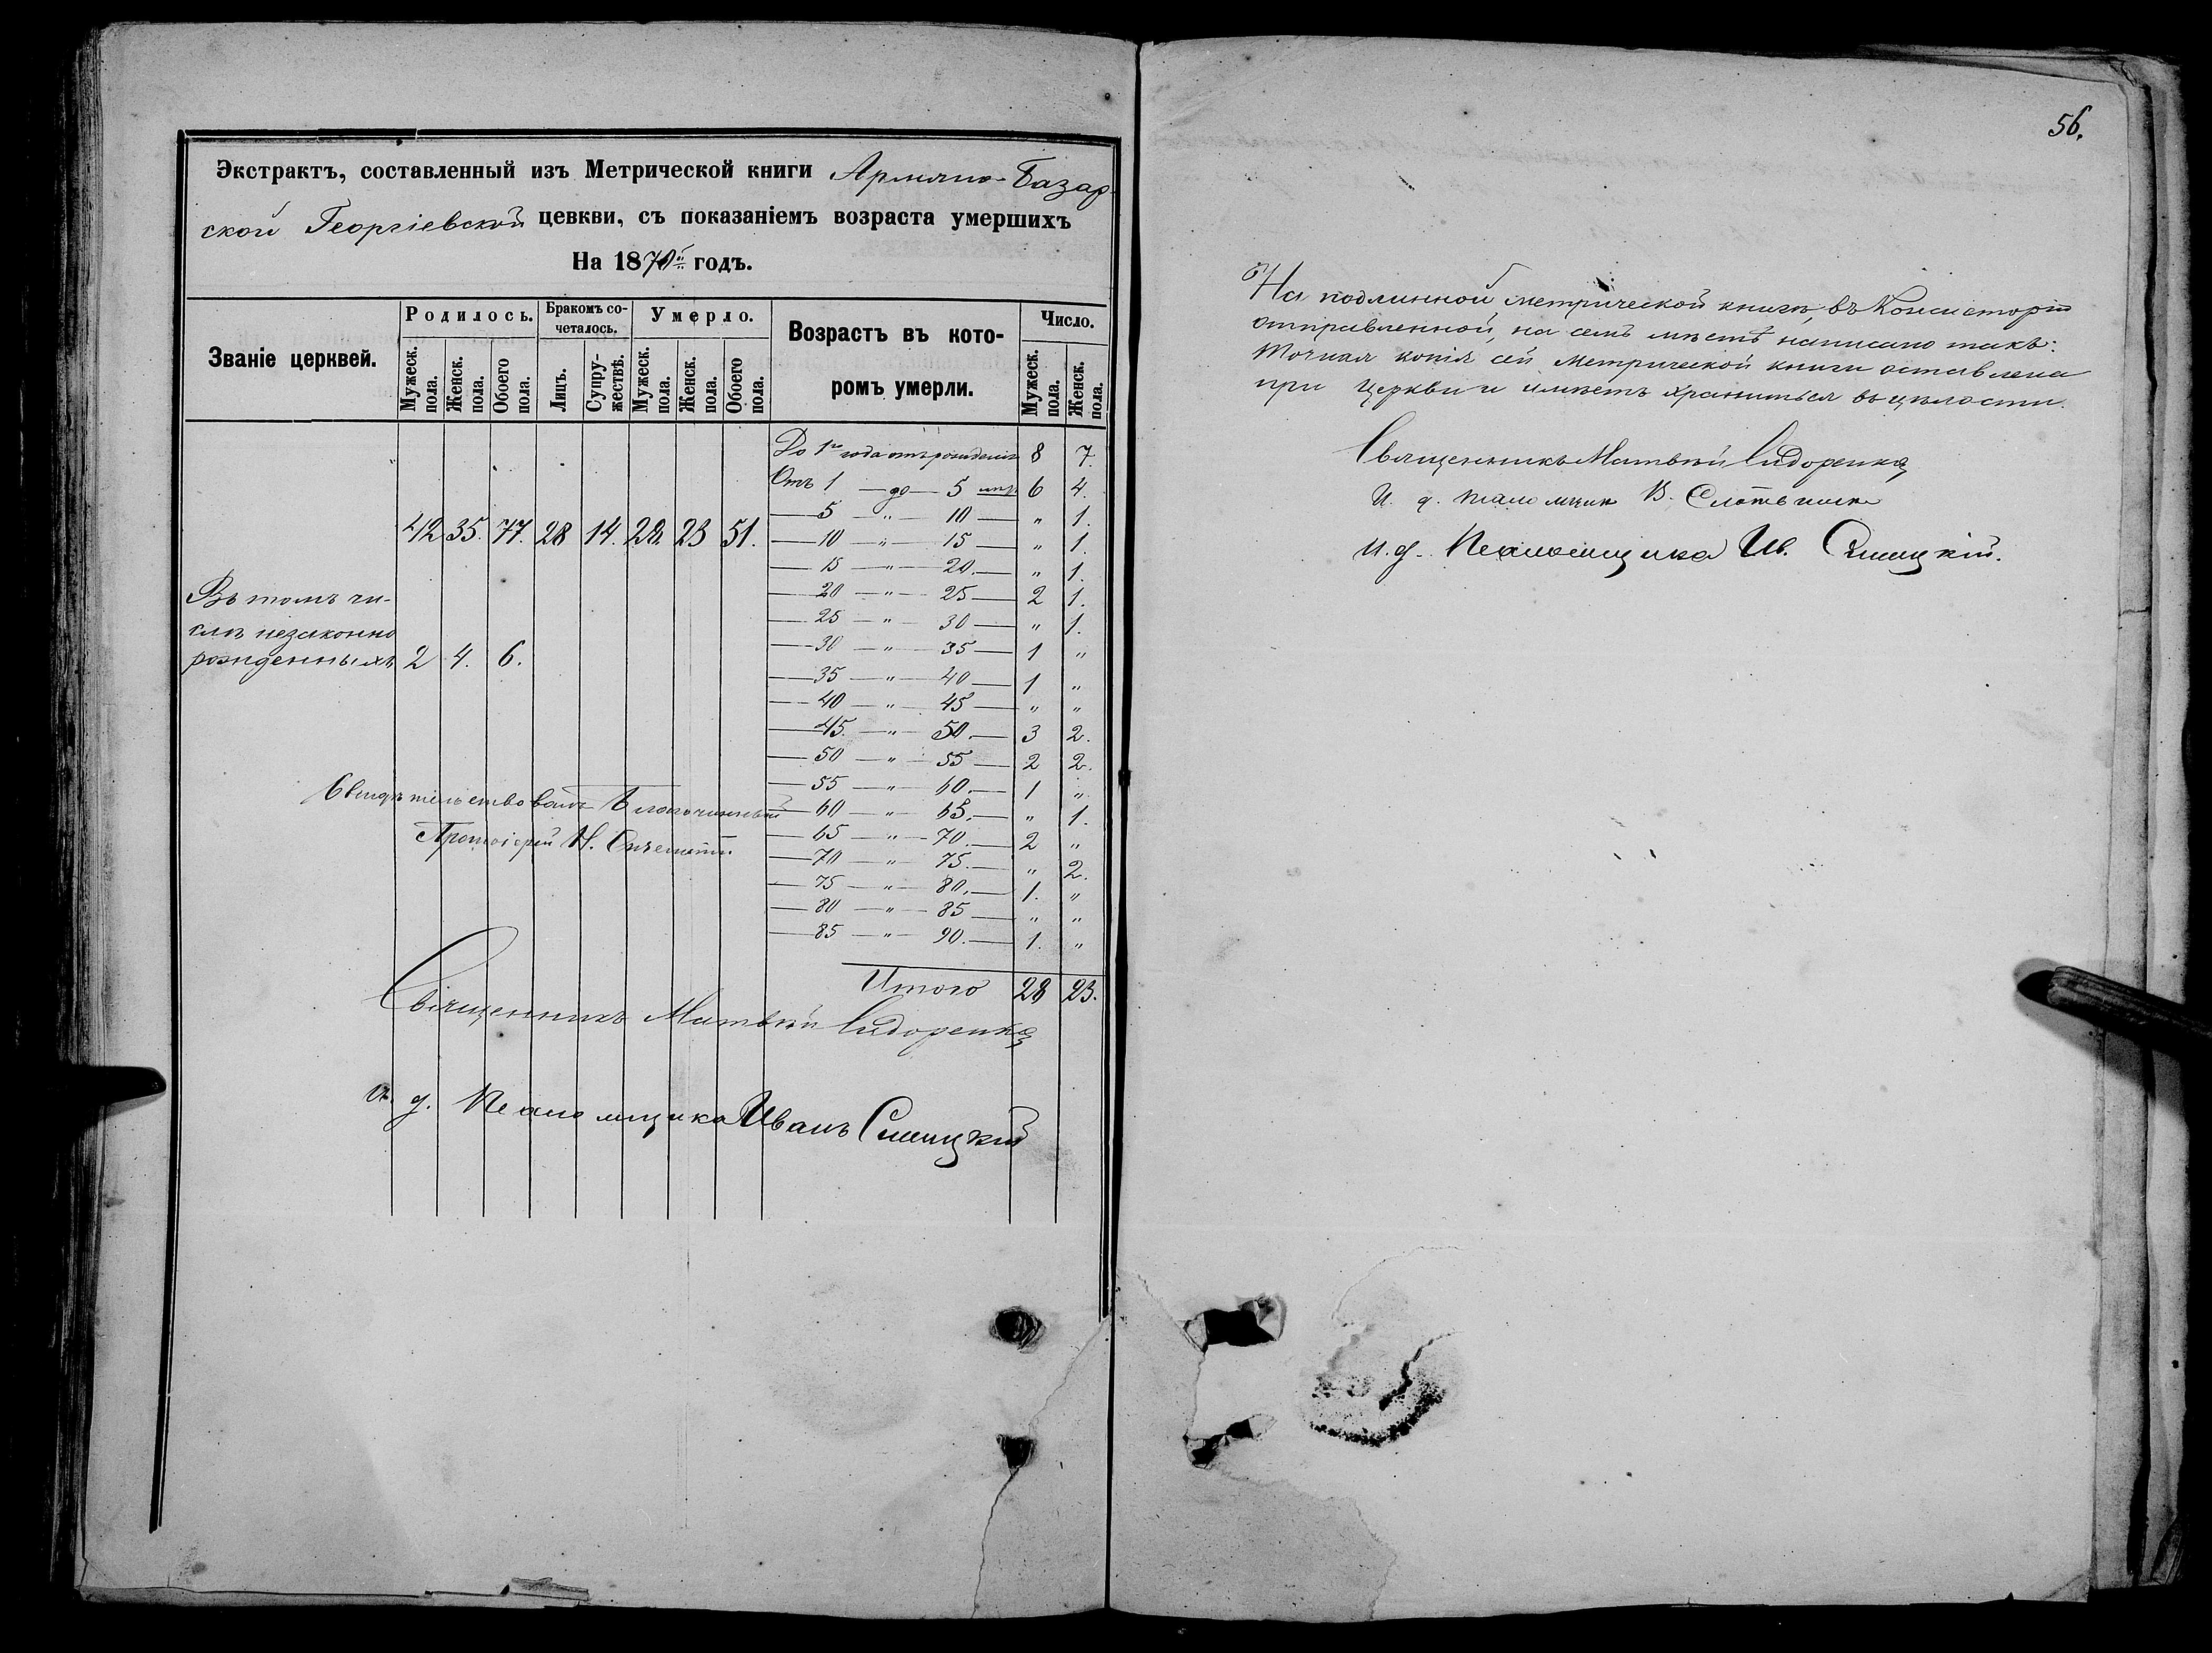 Экстрактъ, составленный изъ Метрической книги Армяно-Базар-
ской Георгіевской цевкви, съ показаніемъ возраста умершихъ
На 1870й годъ.
Званіе церквей.
Родилось.
Бракомъ со-
четалось.
Умерло.
Возрастъ въ кото-
ромъ умерли.
Число.
Мужеск. пола.
Женск. пола.
Обоего пола.
Лицъ.
Супру-
жествѣ.
Мужеск. пола.
Женск. пола.
Обоего пола.
Мужеск. пола.
Женск. пола.
42 35. 77. 28 14. 28. 23 51.
Въ томъ чи-
слѣ незаконно
рожденныхъ 2 4. 6.
До 1го года отъ рожденія 8 7.
Отъ 1 — до — 5 лѣтъ 6 4.
— 5 — „ — 10 — „ 1.
— 10 — „ — 15 — „ 1.
— 15 — „ — 20. — „ 1.
— 20 — „ — 25 — 2 1.
— 25 — „ — 30 — „ 1.
— 30 — „ — 35 — 1 „
— 35 — „ — 40 — 1 „
— 40 — „ — 45 — „ „
— 45. — „ — 50. — 3 2.
— 50 — „ — 55 — 2 2.
— 55 — „ — 60. — 1 „
— 60 — „ — 65. — „ 1.
— 65 — „ — 70. — 2 „
— 70 — „ — 75. — „ 2.
— 75 — „ — 80. — 1. „
— 80 — „ — 85 — „ „
— 85 — „ — 90. — 1. „
Итого 28 23.
Свидѣтельствовалъ Благочинный
Протоіерей Н.
Священникъ Матвѣй Сидоренко
И. д. Псаломщика Иванъ Синицкій
56.
На подлинной метрической книгѣ, въ Консисторію
отправленной, на семъ мѣстѣ написано такъ:
Точная копія сей Метрической книги оставлена
при церкви и имѣетъ храниться въ цѣлости.
Священникъ Матвѣй Сидоренко
И. д. В.
И. д. Псаломщика Ив. Синицкій.